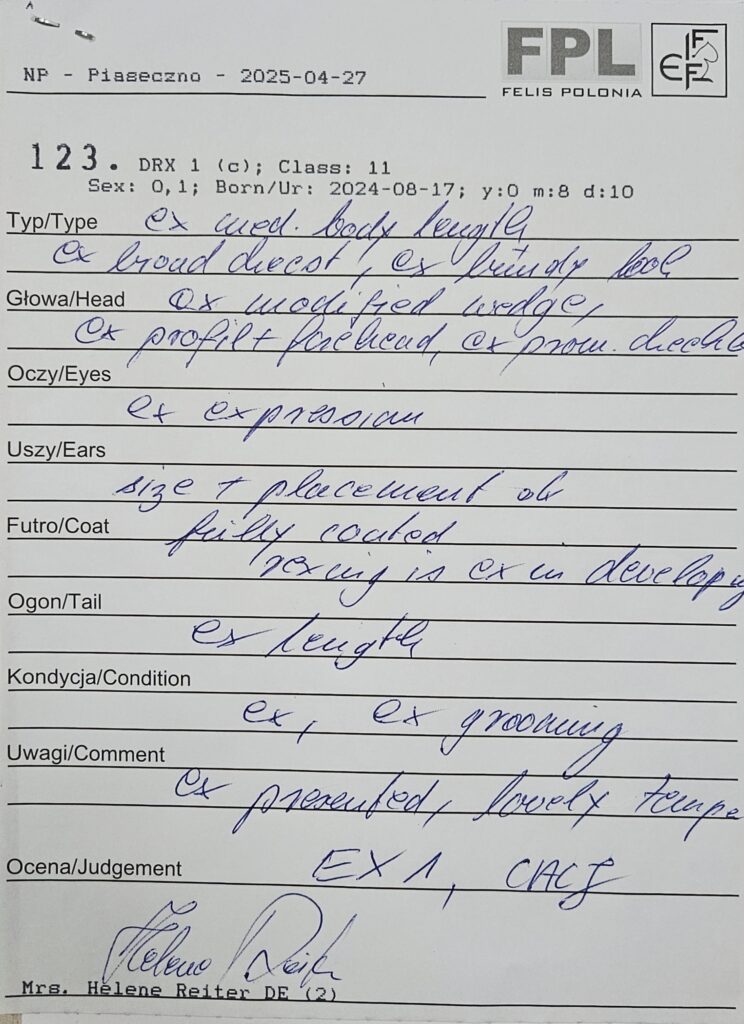 NP - Piaseczno - 2025-04-27
FPL
FELIS POLONIA
FIFe
123. DRX 1 (c); Class: 11
Sex: 0,1; Born/Ur: 2024-08-17; y:0 m:8 d:10
Typ/Type ex med. body length
ex broad chest, ex look
Głowa/Head ex modified wedge,
ex profil + forehead, ex prom. cheek
Oczy/Eyes
ex expression
Uszy/Ears
size + placement ok
Futro/Coat fully coated
rexing is ex in develop
Ogon/Tail
ex length
Kondycja/Condition
ex, ex grooming
Uwagi/Comment
ex presented, lovely tempe
Ocena/Judgement EX 1, CACJ
Helene Reiter
Mrs. Helene Reiter DE (2)